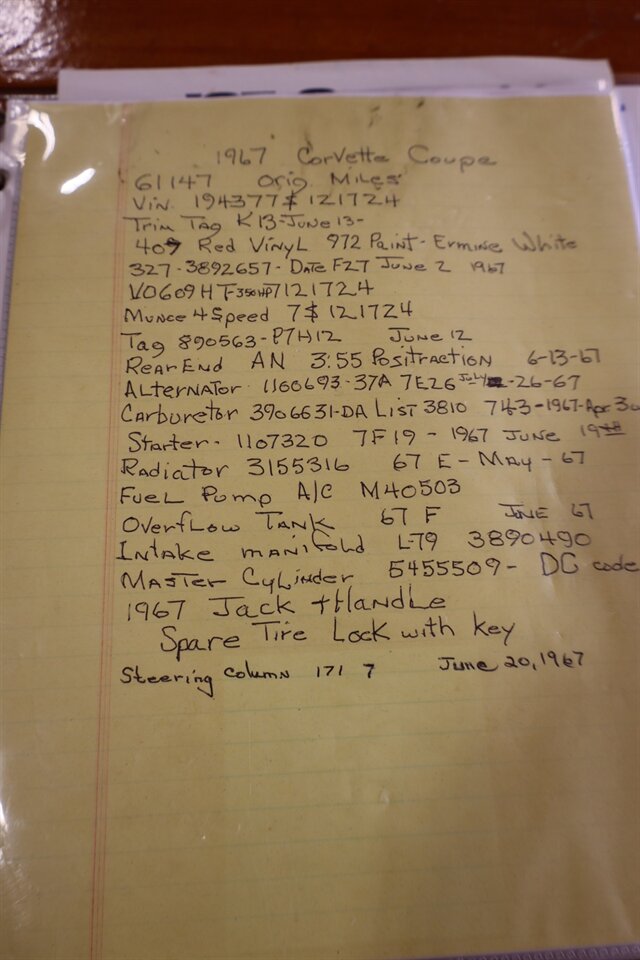 1967 Corvette Coupe
61147 Orig Miles
Vin 194377$ 121724
Trim Tag K13-June 13-
407 Red Vinyl 972 Paint-Ermine White
327-3892657-Date F27 June 2 1967
V0609HT-350HP7121724
Munce 4 Speed 7$121724
Tag 890563-P7H12 June 12
Rear End AN 3:55 Positraction 6-13-67
Alternator 1100693-37A 7E26 -26-67
Carburetor 3906631-DA List 3810 743-1967-Apr 3
Starter-1107320 7F19-1967 June 19th
Radiator 3155316 67 E-May-67
Fuel Pump A/C M40503
Overflow Tank 67 F June 67
Intake manifold L-79 3890490
Master Cylinder 5455509- DC code
1967 Jack + Handle
Spare Tire Lock with key
Steering column 171 7 June 20, 1967